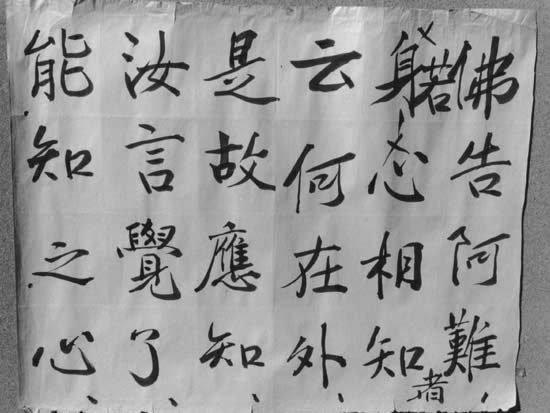 佛告阿難
若身心相知者
云何在外
是故應知
汝言覺了
能知之心